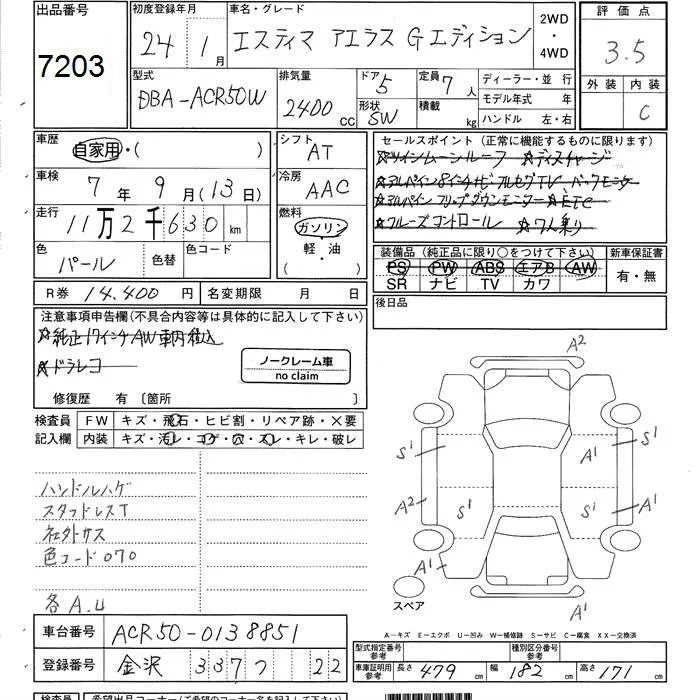 出品番号
7203
初度登録年月
24年1月
車名・グレード
エスティマ アエラス Gエディション
2WD
・
4WD
評価点
3.5
外装 内装
C
型式
DBA-ACR50W
排気量
2400cc
ドア
5
形状
SW
定員
7人
積載
kg
ディーラー・並行
モデル年式 年
ハンドル 左・右
車歴
自家用・( )
シフト
AT
車検
7年9月(13日)
冷房
AAC
走行
11万2千630km
燃料
ガソリン
・
軽・油
( )
色
パール
色替
色コード
R券 14,400円
名変期限 月 日
セールスポイント(正常に機能するものに限ります)
☆ツインムーンルーフ ☆ディスチャージ
☆アルパイン8インチナビ フルセグTV、バックモニター
☆アルパイン フリップダウンモニター ☆ETC
☆クルーズコントロール ☆7人乗り
装備品(純正品に限り○をつけて下さい)
PS PW ABS エアB AW
SR ナビ TV カワ
新車保証書
有・無
後日品
注意事項申告欄(不具合内容等は具体的に記入して下さい)
☆純正17インチAW車内積込
☆ドラレコ
ノークレーム車
no claim
修復歴 有〔箇所 〕
検査員
記入欄
FW キズ・飛石・ヒビ割・リペア跡・X要
内装 キズ・汚レ・コゲ・穴・スレ・キレ・破レ
ハンドルハゲ
スタッドレスT
社外サス
色コード070
各A.U
A2
S1
A1
S1
A2
S1
S1
A1
A1
A1
A1
スペア
A―キズ E―エクボ U―凹み W―補修跡 S―サビ C―腐食 XX―交換済
車台番号
ACR50-0138851
登録番号
金沢 337つ 22
型式指定番号
参考
種別区分番号
参考
車庫証明用
参考
長さ 479cm
幅 182cm
高さ 171cm
検査員
希望出品コーナー(ご希望のコーナー名を記入下さい)